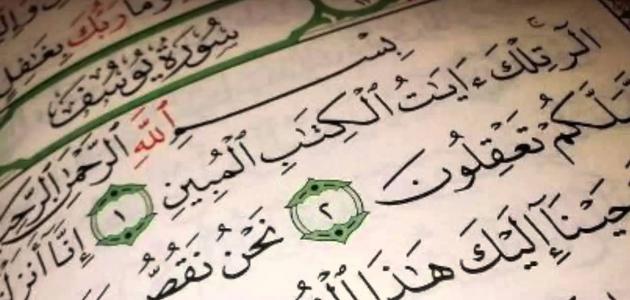 وَمَا رَبُّكَ بِغَٰفِلٍ
سُورَةُ يُوسُفَ
بِسْمِ ٱللَّهِ ٱلرَّحْمَٰنِ ٱلرَّحِيـ
الٓر تِلْكَ ءَايَٰتُ ٱلْكِتَٰبِ ٱلْمُبِينِ ١ إِنَّآ أَنزَلْـ
ـلَّكُمْ تَعْقِلُونَ ٢ نَحْنُ نَقُصُّ
ـحَيْنَآ إِلَيْكَ هَٰذَا